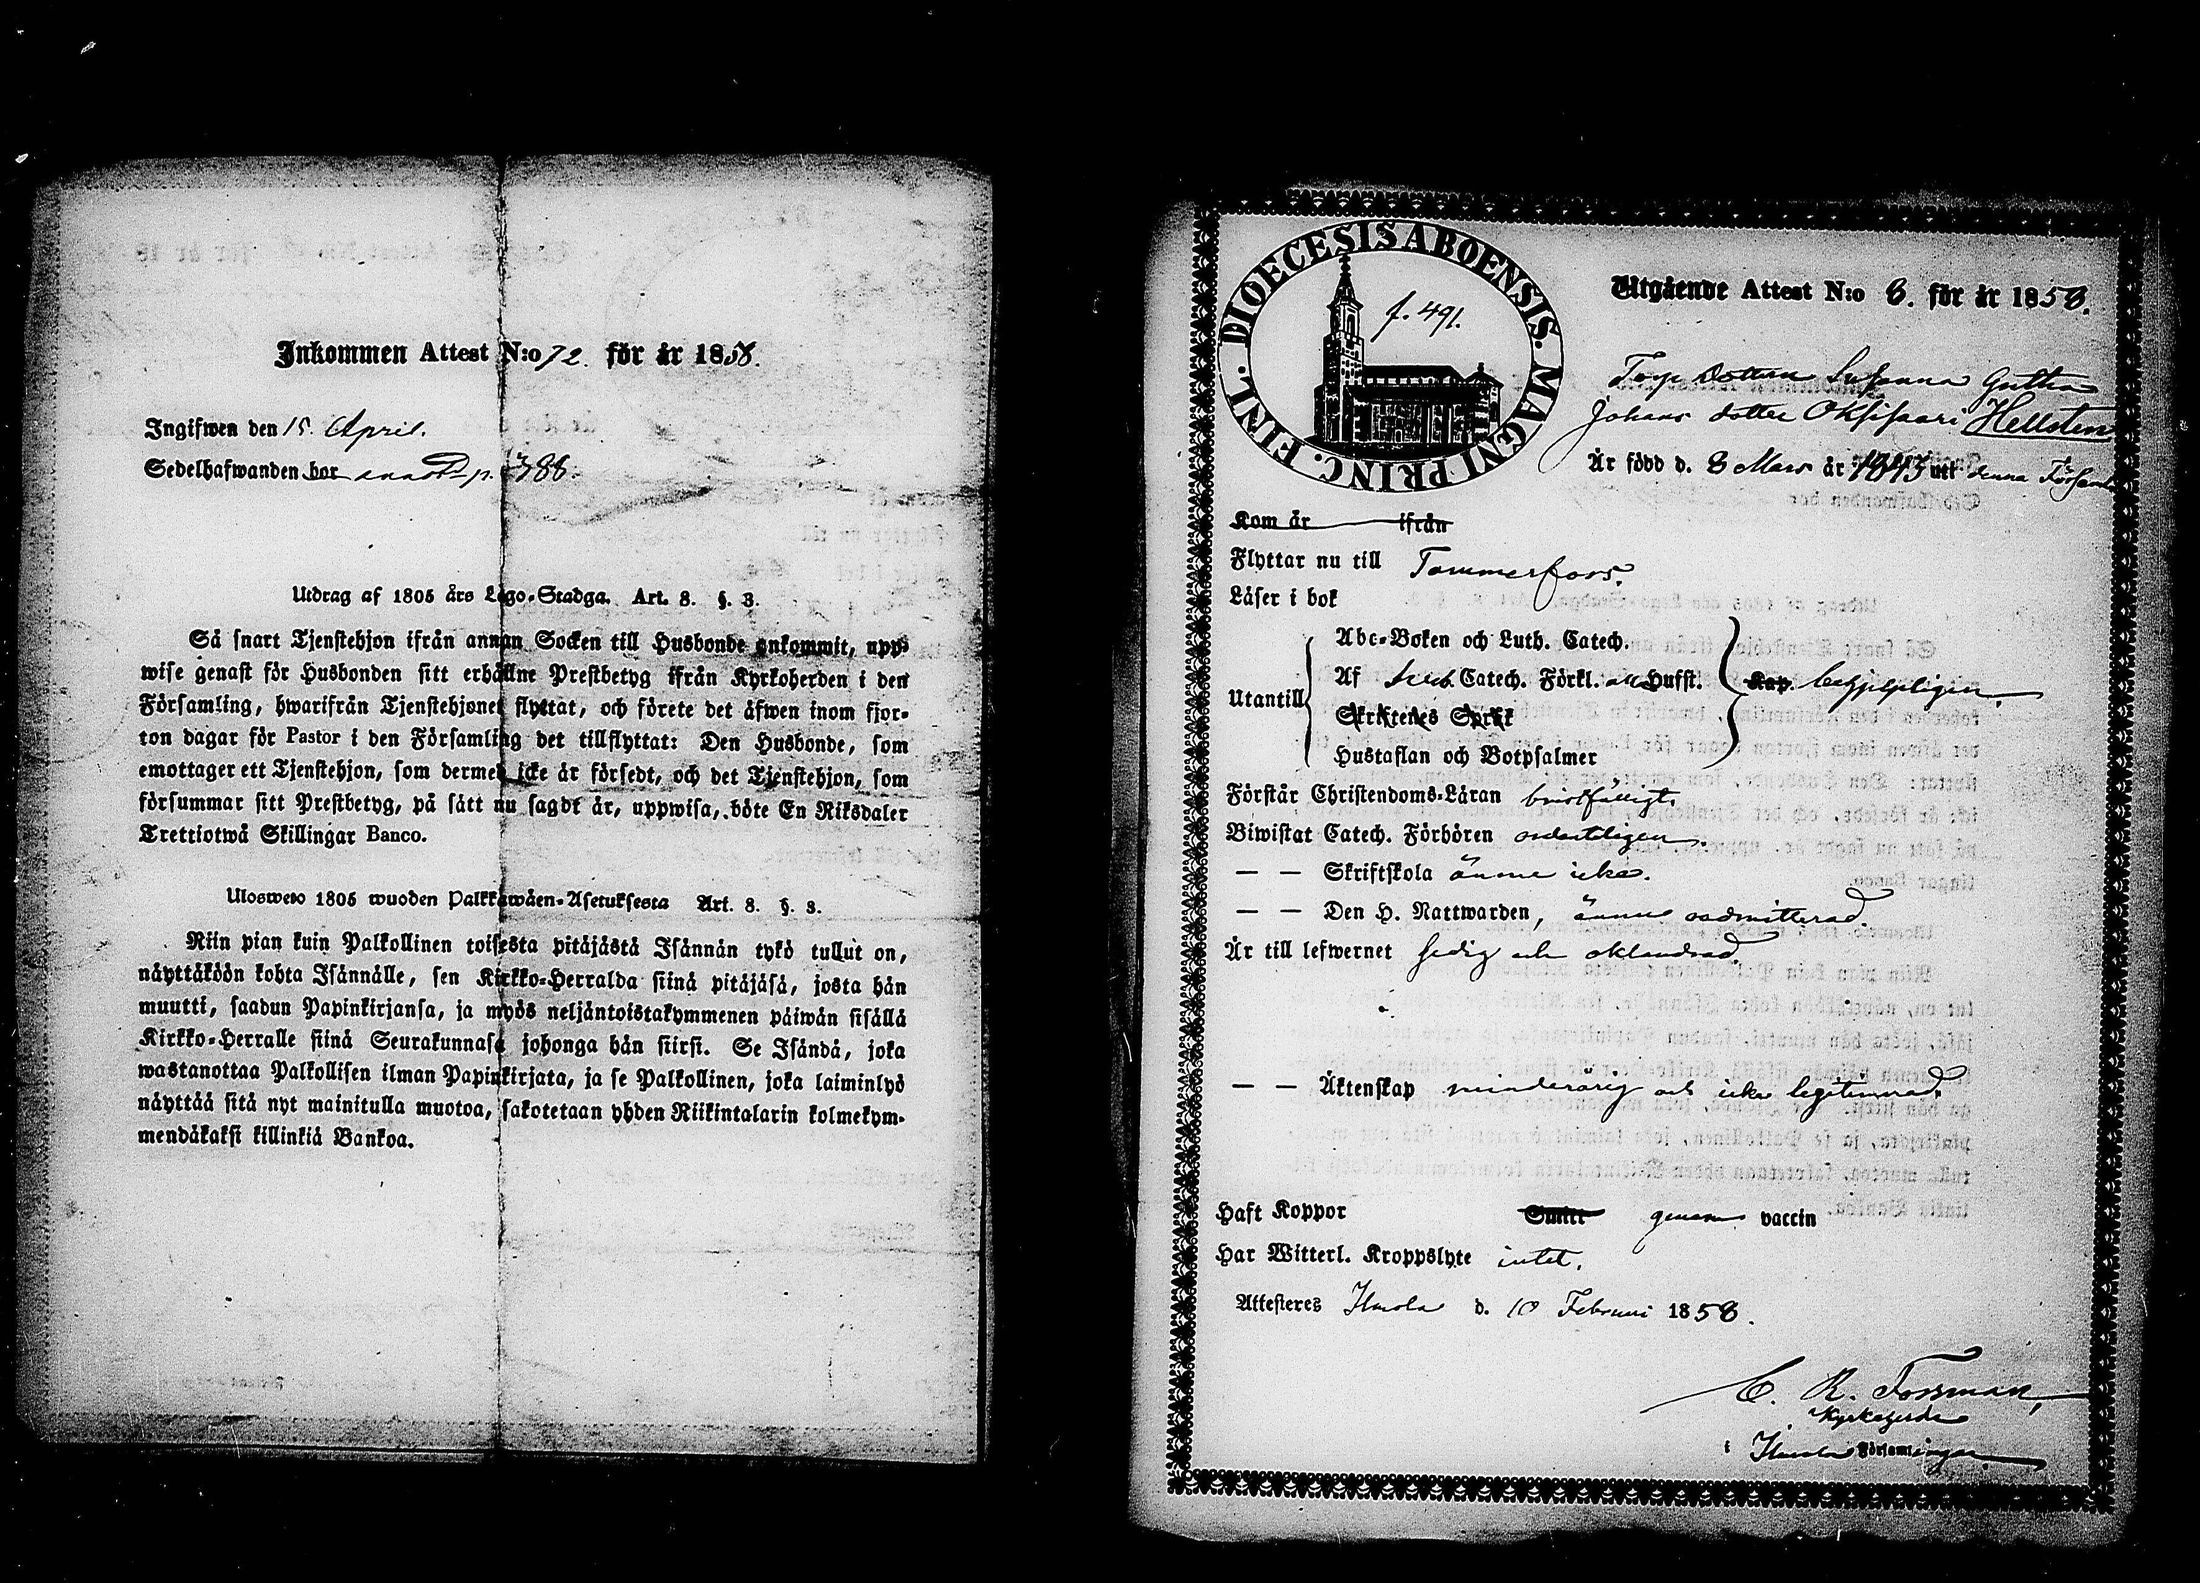 Inkommen Attest N:o 72. för år 1858.
Ingifwen den 15. April.
Sedelhafwanden bor p. 388.
Utdrag af 1805 års Lego-Stadga. Art. 8. §. 3.
Så snart Tjenstehjon ifrån annan Socken till Husbonde ankommit, upp-
wise genast för Husbonden sitt erhållne Prestbetyg ifrån Kyrkoherden i den
Församling, hwarifrån Tjenstehjonet flyttat, och förete det äfwen inom fjor-
ton dagar för Pastor i den Församling det tillflyttat: Den Husbonde, som
emottager ett Tjenstehjon, som dermed icke är försedt, och det Tjenstehjon, som
försummar sitt Prestbetyg, på sätt nu sagdt är, uppwisa, böte En Riksdaler
Trettiotwå Skillingar Banco.
Ulosweto 1805 wuoden Palkkawäen-Asetuksesta Art. 8. §. 3.
Niin pian kuin Palkollinen toisesta pitäjästä Isännän tykö tullut on,
näyttäköön kohta Isännälle, sen Kirkko-Herralda siinä pitäjäsä, josta hän
muutti, saadun Papinkirjansa, ja myös neljäntoistakymmenen päiwän sisällä
Kirkko-Herralle siinä Seurakunnasa johonga hän siirsi. Se Isändä, joka
wastanottaa Palkollisen ilman Papinkirjata, ja se Palkollinen, joka laiminlyö
näyttää sitä nyt mainitulla muotoa, sakotetaan yhden Riikintalarin kolmekym-
mendäkaksi killinkiä Bankoa.
DIOECESIS ABOENSIS. MAGNI PRINC. FINL.
f. 491.
Utgående Attest N:o 8. för år 1858.
Torp dottern Susanna Gustha
Johans dotter Oksisaari Hellsten
Är född d. 8 Mars år 1843 uti denna Församl
Kom år ifrån
Flyttar nu till Tammerfors.
Läser i bok
Utantill
Abc-Boken och Luth. Catech.
Af Luth. Catech. Förkl. Hufst.
Skriftenes Språk
Hustaflan och Botpsalmer
Kap. behjelpligen
Förstår Christendoms-Läran bristfälligt.
Biwistat Catech. Förhören ordentligen.
— — Skriftskola ännu icke.
— — Den H. Nattwarden, ännu oadmitterad.
Är till lefwernet sedig och oklandrad.
— — Äktenskap minderårig och icke legitimerad.
Haft Koppor Smitt genom vaccin
Har Witterl. Kroppslyte intet.
Attesteres Ilmola d. 10 Februari 1858.
C. R. Forsman,
Kyrkoherde
i Ilmola Församlingar.